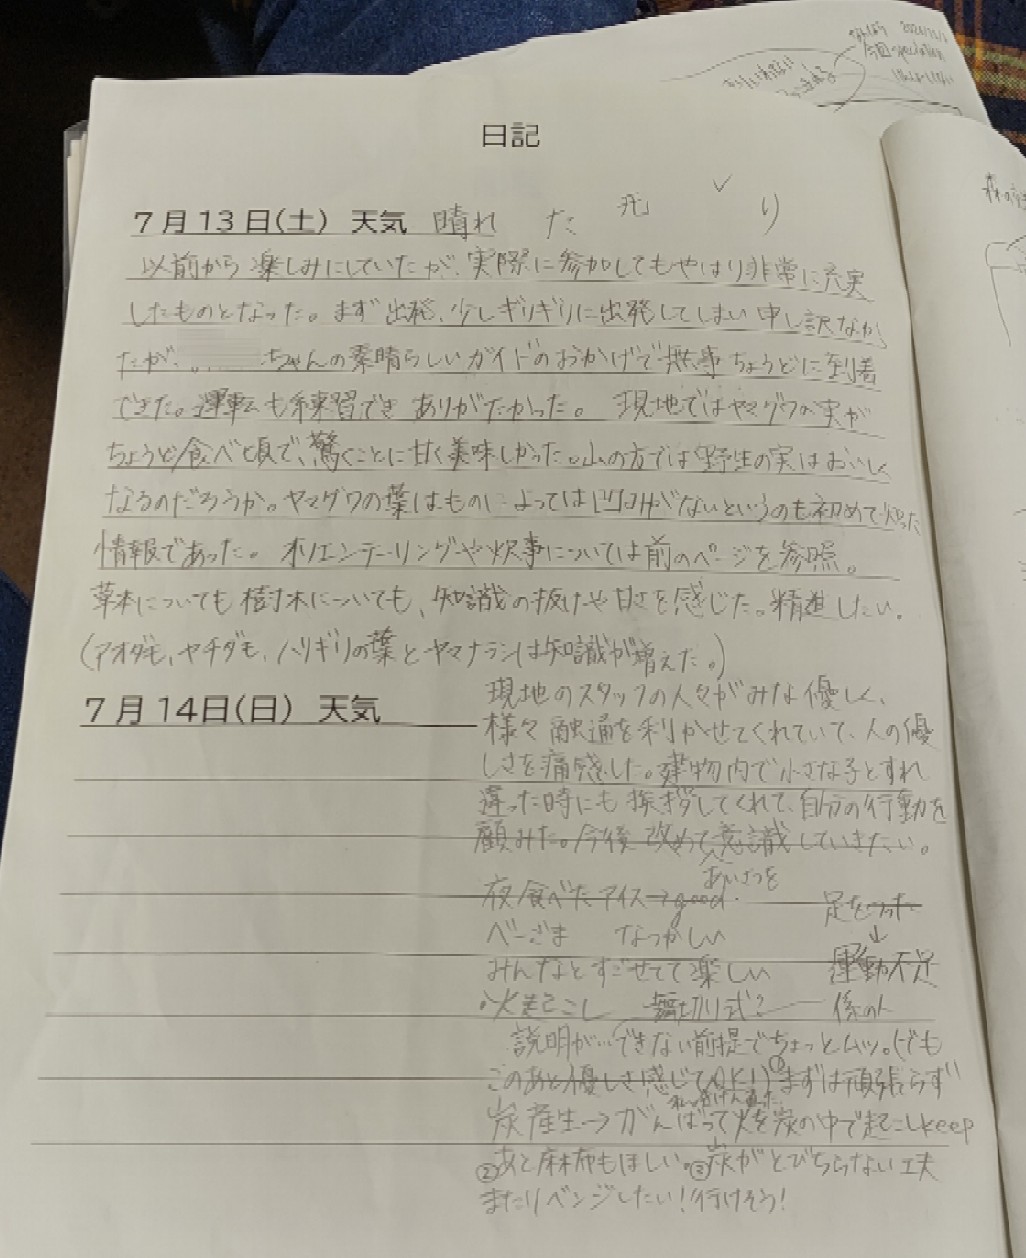 日記
7月13日(土) 天気 晴れ
以前から楽しみにしていたが、実際に参加してもやはり非常に充実
したものとなった。まず出発、少しギリギリに出発してしまい申し訳なかっ
たが、ちゃんの素晴らしいガイドのおかげで無事ちょうどに到着
できた。運転も練習できありがたかった。現地ではヤマグワの実が
ちょうど食べ頃で、驚くことに甘く美味しかった。山の方では野生の実はおいしく
なるのだろうか。ヤマグワの葉はものによっては凹凸がないというのも初めて知った
情報であった。オリエンテーリングや炊事については前のページを参照。
草本についても樹木についても、知識の抜けや甘さを感じた。精進したい。
(アオダモ、ヤチダモ、ハリギリの葉とヤマナラシは知識が増えた。)
7月14日(日) 天気
現地のスタッフの人々がみな優しく、
様々融通を利かせてくれていて、人の優
しさを痛感した。建物内で小さな子とすれ
違った時にも挨拶してくれて、自分の行動を
顧みた。今後改めて意識していきたい。
あいさつを
夜食べたアイス→good.
足をつった
↓
運動不足
べーごま なつかしい
みんなとすごせてて楽しい
火起こし 舞切り式?
係の人
説明が…できない前提でちょっとムッ。(でも
このあと優しさ感じてOK!)①まずは頑張らず
炭産生→がんばって火を炭の中で起こしkeep
②あと麻布もほしい。③炭がとびちらない工夫
またリベンジしたい!行けそう!